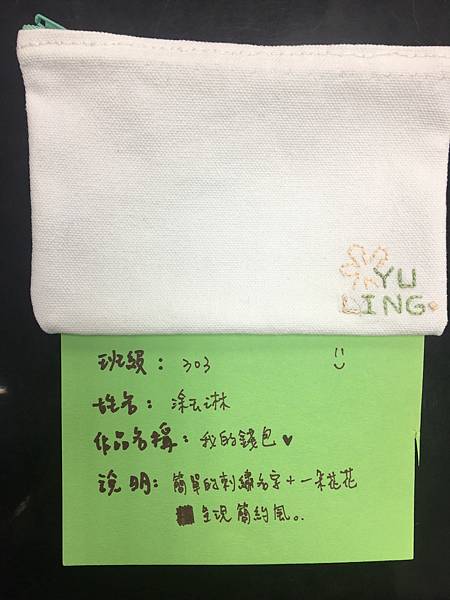 YU
LING
班級：303
姓名：涂玉琳
作品名稱：我的錢包♥
說明：簡單的刺繡名字+一朵花花
呈現簡約風。